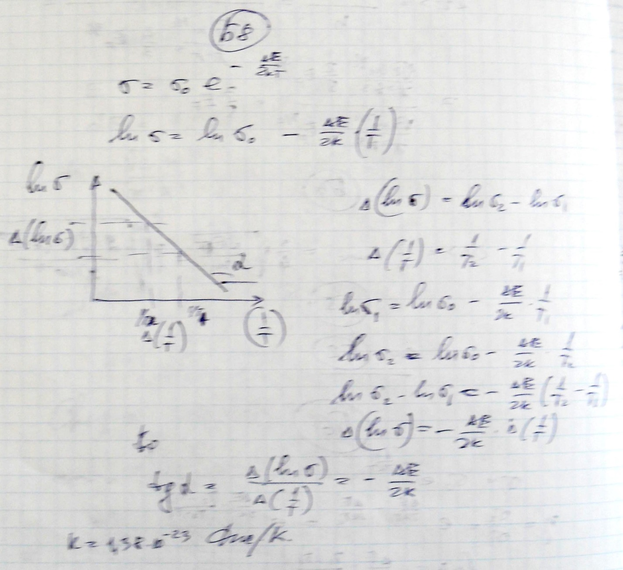 Б8
σ = σ₀ e^(- ΔE/2kT)
ln σ = ln σ₀ - ΔE/2k (1/T)
ln σ
Δ(ln σ)
α
Δ(1/T)
(1/T)
Δ(ln σ) = ln σ₂ - ln σ₁
Δ(1/T) = 1/T₂ - 1/T₁
ln σ₁ = ln σ₀ - ΔE/2k · 1/T₁
ln σ₂ = ln σ₀ - ΔE/2k · 1/T₂
ln σ₂ - ln σ₁ = - ΔE/2k (1/T₂ - 1/T₁)
Δ(ln σ) = - ΔE/2k · Δ(1/T)
tg α = Δ(ln σ)/Δ(1/T) = - ΔE/2k
k = 1,38·10⁻²³ Дж/К